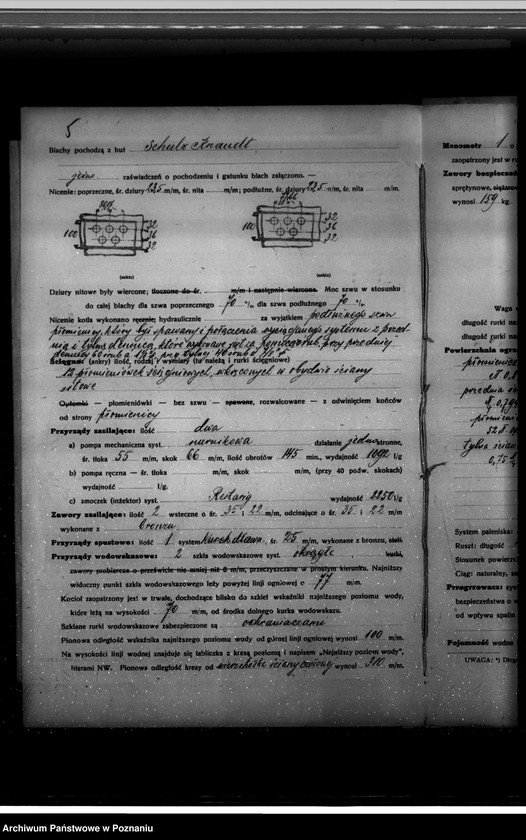 5
Blachy pochodzą z hut Schulz Knaudt
jedno zaświadczeń o pochodzeniu i gatunku blach załączono. —
Nicenie: poprzeczne, śr. dziury 135 m/m, śr. nita m/m; podłużne, śr. dziury 135 m/m, śr. nita m/m.
100
32
36
32
100
32
36
32
(szkic) (szkic)
Dziury nitowe były wiercone; tłoczone do śr. m/m i następnie wiercone. Moc szwu w stosunku
do całej blachy dla szwa poprzecznego 70 % dla szwa podłużnego 70 %
Nicenie kotła wykonano ręcznie; hydraulicznie za wyjątkiem podłużnego szwu
płomienicy, który był spawany i połączenia wyciąganego systemu z przed-
nią i tylną dennicą, które wykonane są za pomocą śrub, przy przedniej
dennicy 60 śrub a 1¼", przy tylnej 40 śrub
Ściągna: (ankry) ilość, rodzaj i wymiary (tu należą i rurki ściągniowe)
12 płomieniówek ściągniowych, wkręconych w obydwie ściany
sitowe
Opłomki — płomieniówki — bez szwu — spawane, rozwalcowane — z odwinięciem końców
od strony płomienicy
Przyrządy zasilające: ilość dwa
a) pompa mechaniczna syst. nurnikowa działanie jednostronne,
śr. tłoka 55 m/m, skok 66 m/m, ilość obrotów 145 min., wydajność 1092 l/g
b) pompa ręczna — śr. tłoka m/m, skok m/m, (przy 40 podw. skokach)
wydajność l/g.
c) smoczek (inżektor) syst. Restarig wydajność 2250 l/g
Zawory zasilające: ilość 2 wsteczne o śr. 35 i 22 m/m, odcinające o śr. 35 i 22 m/m
wykonane z bronzu
Przyrządy spustowe: ilość 1 system kurek dławn. śr. 25 m/m, wykonane z bronzu, stali.
Przyrządy wodowskazowe: 2 szkła wodowskazowe syst. okrągłe, kurki,
zawory probiercze o prześwicie nie mniej niż 8 m/m, przeczyszczane w prostym kierunku. Najniższy
widoczny punkt szkła wodowskazowego leży powyżej linji ogniowej o 77 m/m.
Kocioł zaopatrzony jest w trwałe, dochodzące blisko do szkieł wskaźniki najniższego poziomu wody,
które leżą na wysokości 70 m/m, od środka dolnego kurka wodowskazu.
Szklane rurki wodowskazowe zabezpieczone są ochraniaczami
Pionowa odległość wskaźnika najniższego poziomu wody od górnej linji ogniowej wynosi 100 m/m.
Na wysokości linji wodnej znajduje się tabliczka z kresą poziomą i napisem „Najniższy poziom wody",
literami NW. Pionowa odległość kresy od wierzchołka ściany ogniowej wynosi 310 m/m.
Manometr 1 o
zaopatrzony jest w r
Zawory bezpieczeń
sprężynowe,
wynosi 159 kg.
Waga
długość rurki na
długość rurki na
Powierzchnia ogra
płomienica
przednia
płomieni
tylna ścian
System paleniska:
Ruszt: długość
Stosunek powierz
Ciąg: naturalny,
Przegrzewacz: syst
bezpieczeństwa o
od wpływu spalin
Pojemność wodna
UWAGA: *) Dług
Archiwum Państwowe w Poznaniu